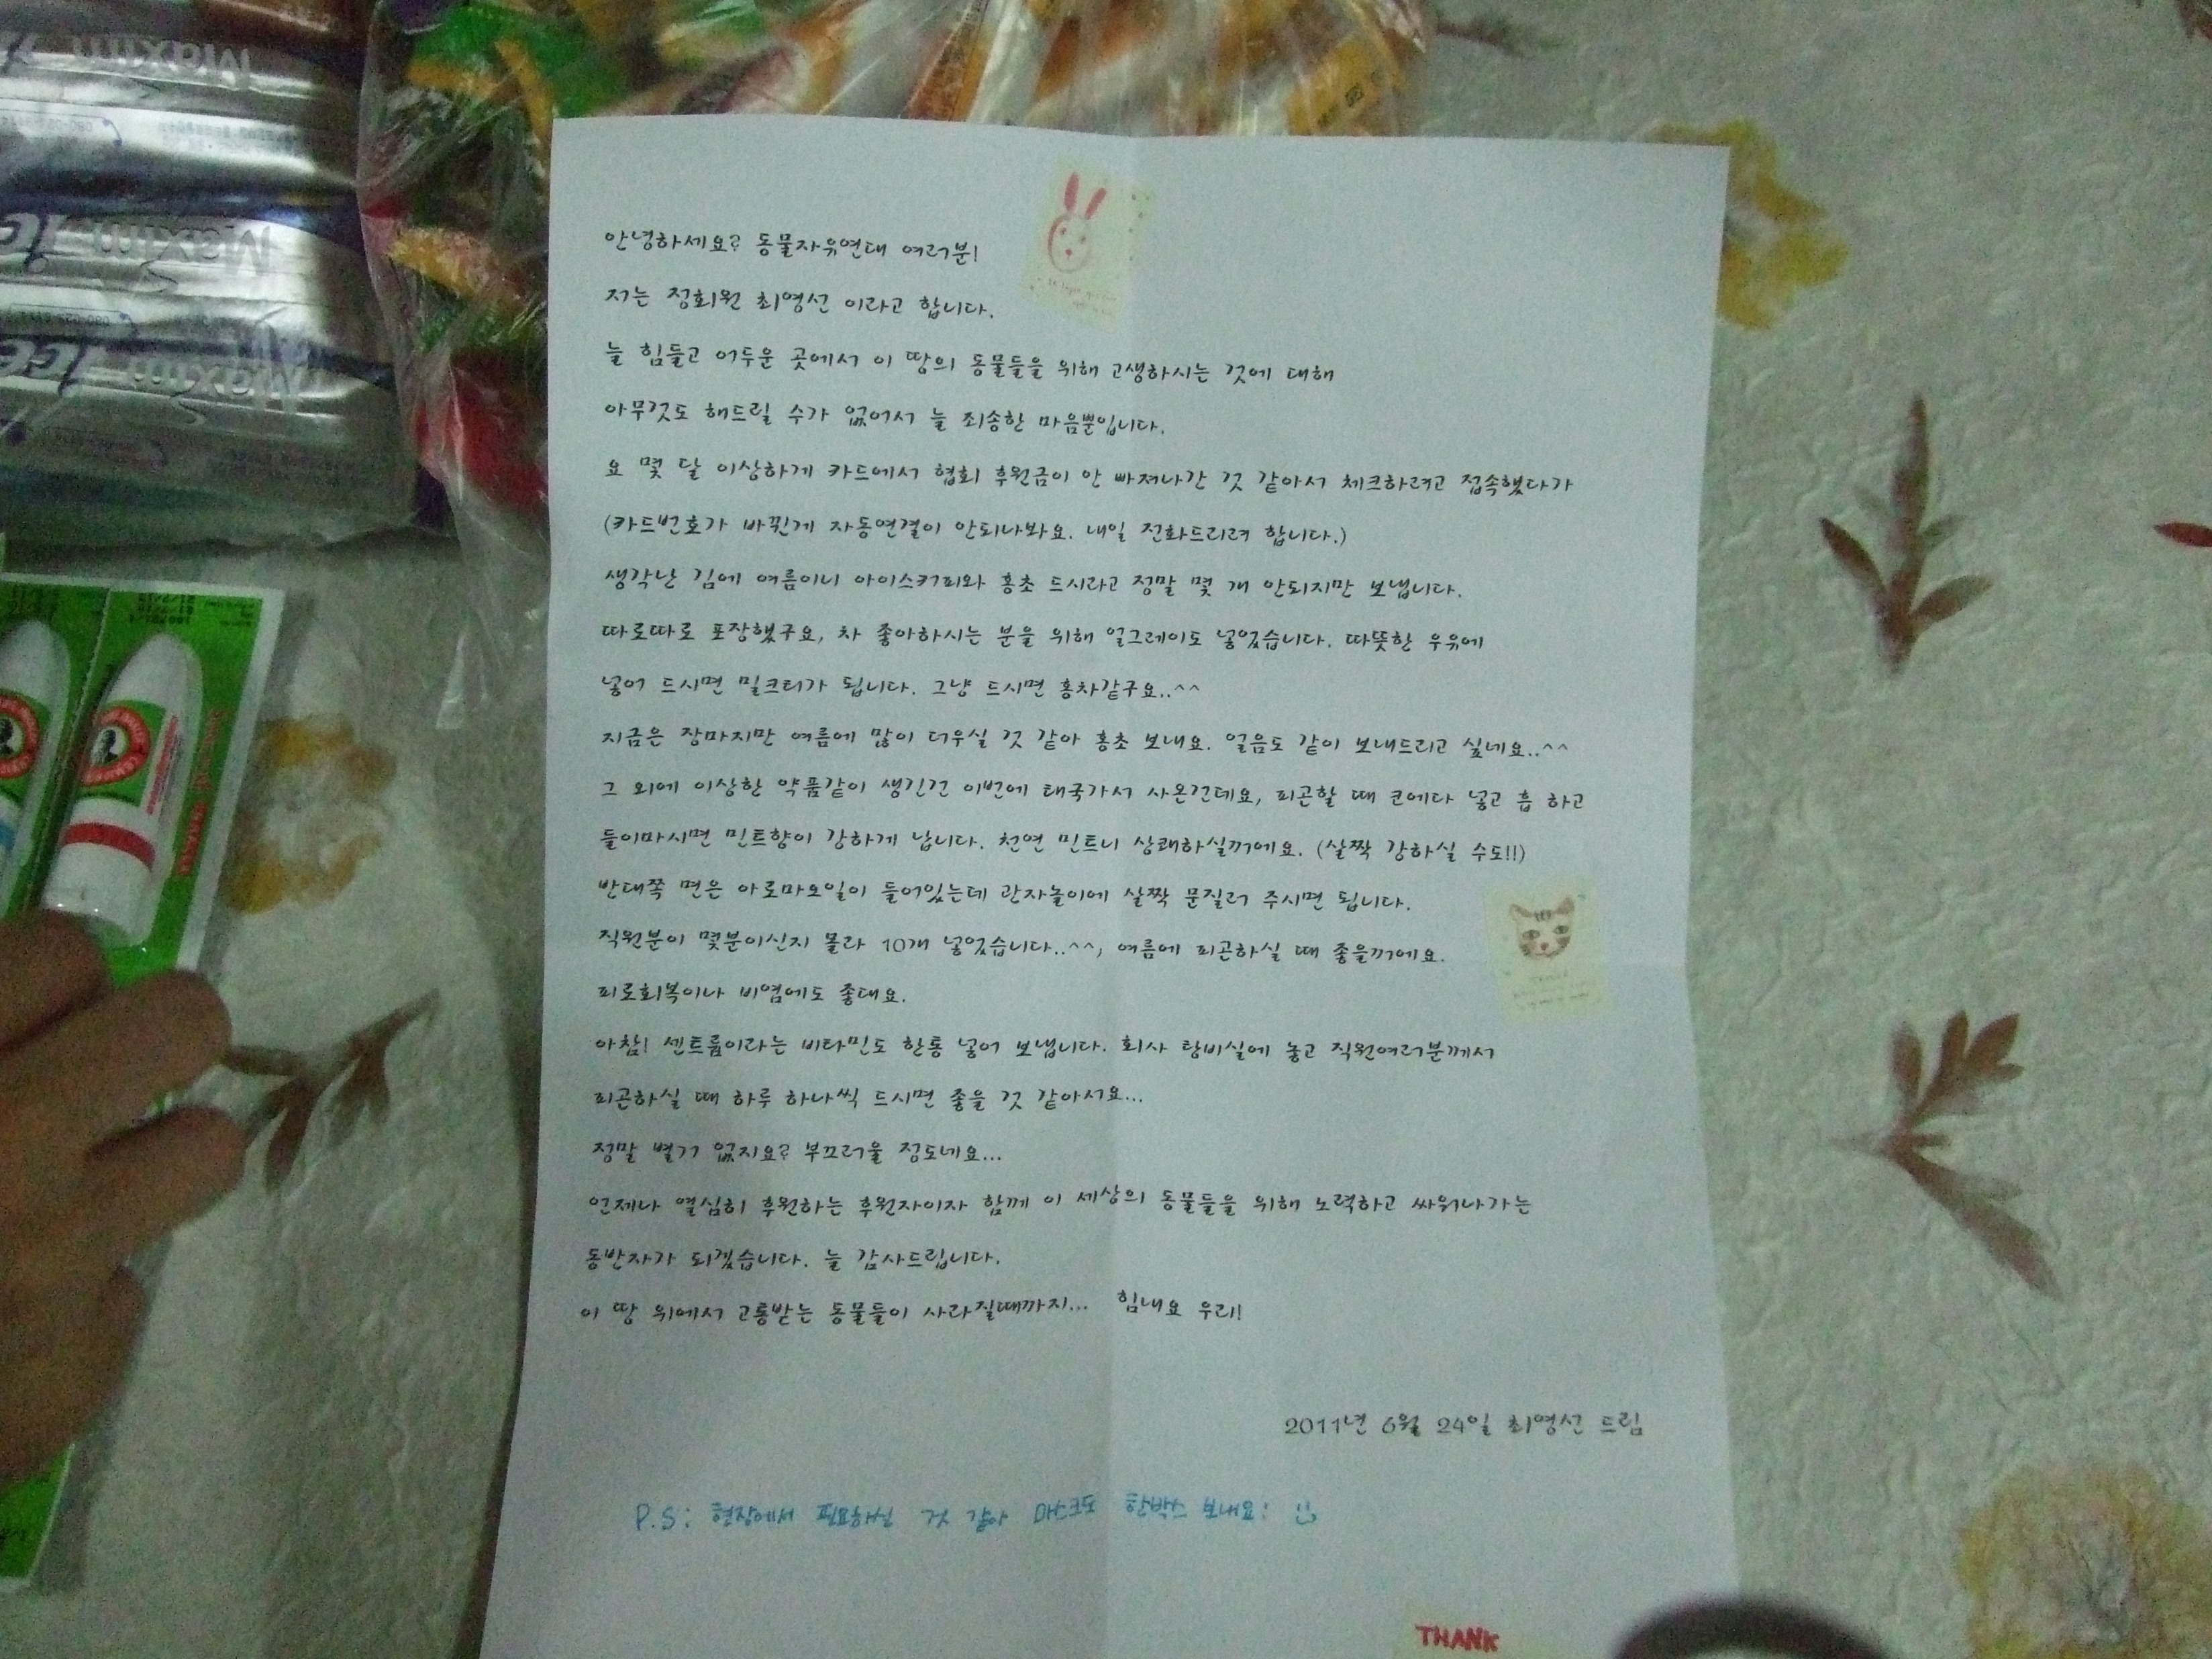 Maxim
Maxim
Ice
Maxim
Ice
안녕하세요? 동물자유연대 여러분!
저는 정회원 최영선 이라고 합니다.
늘 힘들고 어두운 곳에서 이 땅의 동물들을 위해 고생하시는 것에 대해
아무것도 해드릴 수가 없어서 늘 죄송한 마음뿐입니다.
요 몇 달 이상하게 카드에서 협회 후원금이 안 빠져나간 것 같아서 체크하려고 접속했다가
(카드번호가 바뀐게 자동연결이 안되나봐요. 내일 전화드리려 합니다.)
생각난 김에 여름이니 아이스커피와 홍초 드시라고 정말 몇 개 안되지만 보냅니다.
따로따로 포장했구요, 차 좋아하시는 분을 위해 얼그레이도 넣었습니다. 따뜻한 우유에
넣어 드시면 밀크티가 됩니다. 그냥 드시면 홍차같구요..^^
지금은 장마지만 여름에 많이 더우실 것 같아 홍초 보내요. 얼음도 같이 보내드리고 싶네요..^^
그 외에 이상한 약품같이 생긴건 이번에 태국가서 사온건데요, 피곤할 때 코에다 넣고 흡 하고
들이마시면 민트향이 강하게 납니다. 천연 민트니 상쾌하실꺼에요. (살짝 강하실 수도!!)
반대쪽 면은 아로마오일이 들어있는데 관자놀이에 살짝 문질러 주시면 됩니다.
직원분이 몇분이신지 몰라 10개 넣었습니다..^^, 여름에 피곤하실 때 좋을꺼에요.
피로회복이나 비염에도 좋대요.
아참! 센트룸이라는 비타민도 한통 넣어 보냅니다. 회사 탕비실에 놓고 직원여러분께서
피곤하실 때 하루 하나씩 드시면 좋을 것 같아서요...
정말 별거 없지요? 부끄러울 정도네요...
언제나 열심히 후원하는 후원자이자 함께 이 세상의 동물들을 위해 노력하고 싸워나가는
동반자가 되겠습니다. 늘 감사드립니다.
이 땅 위에서 고통받는 동물들이 사라질때까지... 힘내요 우리!
2011년 6월 24일 최영선 드림
P.S: 현장에서 필요하실 것 같아 마스크도 한박스 보내요!
THANK